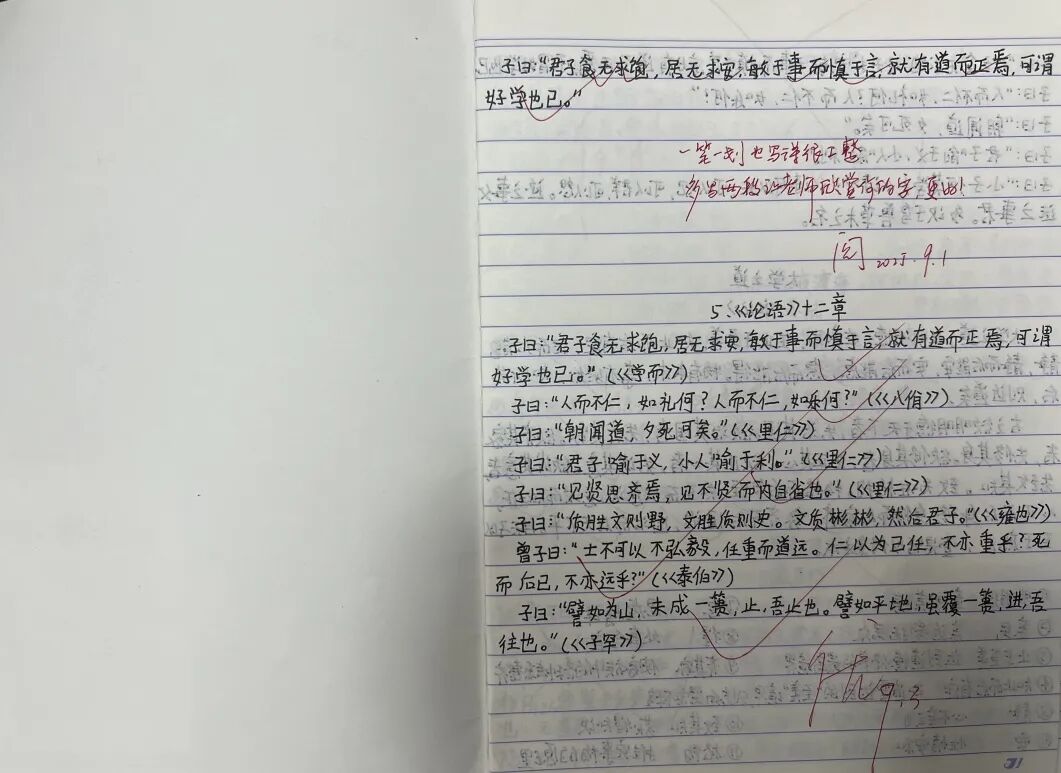 子曰:“君子食无求饱,居无求安,敏于事而慎于言,就有道而正焉,可谓
好学也已。”
一笔一划也写得很工整
多写两段让老师欣赏你的字,更好!
阅 2025.9.1
5.《论语》十二章
子曰:“君子食无求饱,居无求安,敏于事而慎于言,就有道而正焉,可谓
好学也已。”(《学而》)
子曰:“人而不仁,如礼何?人而不仁,如乐何?”(《八佾》)
子曰:“朝闻道,夕死可矣。”(《里仁》)
子曰:“君子喻于义,小人喻于利。”(《里仁》)
子曰:“见贤思齐焉,见不贤而内自省也。”(《里仁》)
子曰:“质胜文则野,文胜质则史。文质彬彬,然后君子。”(《雍也》)
曾子曰:“士不可以不弘毅,任重而道远。仁以为己任,不亦重乎?死
而后已,不亦远乎?”(《泰伯》)
子曰:“譬如为山,未成一篑,止,吾止也。譬如平地,虽覆一篑,进,吾
往也。”(《子罕》)
9.3